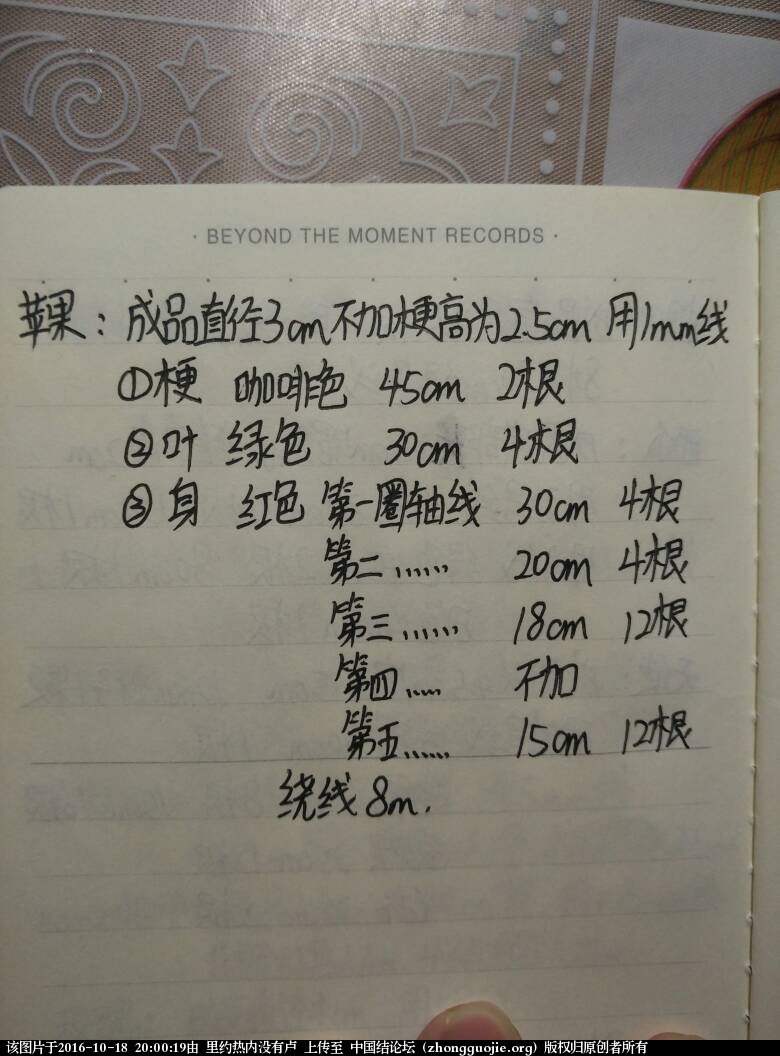 · BEYOND THE MOMENT RECORDS ·
苹果：成品直径3cm不加梗高为2.5cm 用1mm线
①梗 咖啡色 45cm 2根
②叶 绿色 30cm 4根
③身 红色 第一圈轴线 30cm 4根
第二…… 20cm 4根
第三…… 18cm 12根
第四…… 不加
第五…… 15cm 12根
绕线8m.
该图片于2016-10-18 20:00:19由 里约热内没有卢 上传至 中国结论坛（zhongguojie.org）版权归原创者所有